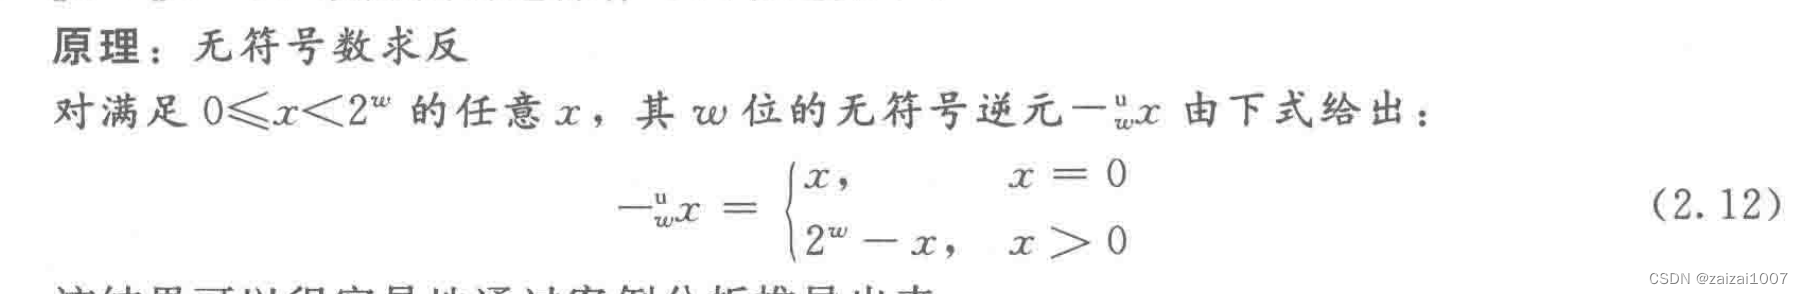 原理：无符号数求反
对满足 0≤x<2^w 的任意 x，其 w 位的无符号逆元 -^u_w x 由下式给出：
-^u_w x = { x, x = 0
2^w - x, x > 0 (2.12)
CSDN @zaizai1007